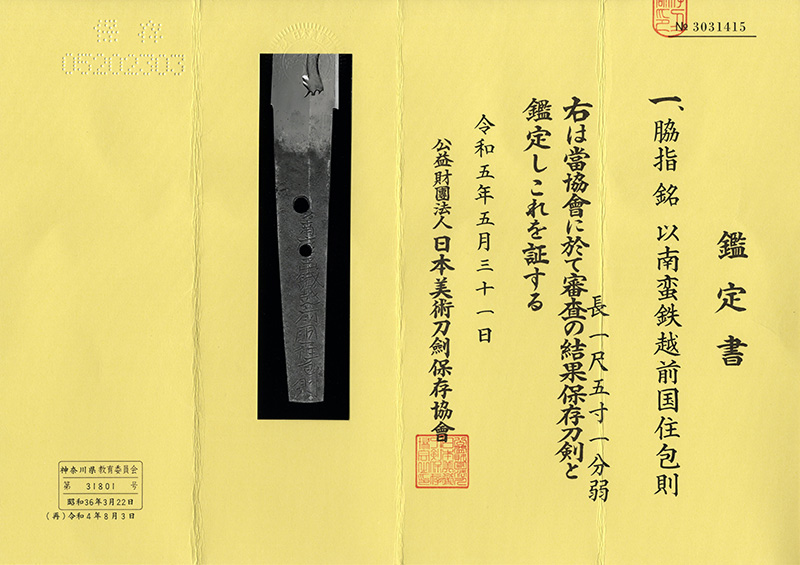 № 3031415
鑑定書
一、脇指 銘 以南蛮鉄越前国住包則
長一尺五寸一分弱
右は當協會に於て審査の結果保存刀剣と
鑑定しこれを証する
令和五年五月三十一日
公益財團法人 日本美術刀劍保存協會
保存
05202303
神奈川県教育委員会
第 31801 号
昭和36年3月22日
(再)令和4年8月3日